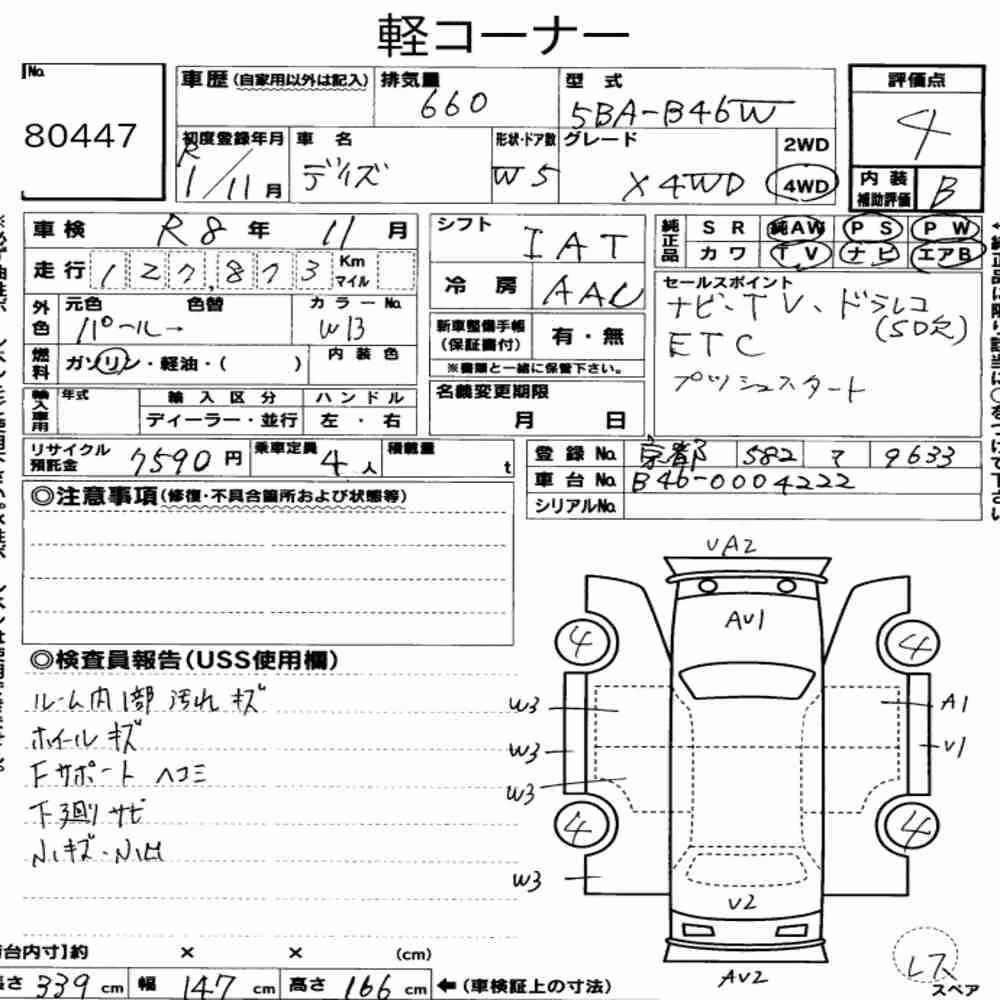 軽コーナー
No.
80447
車歴(自家用以外は記入)
排気量
660
型式
5BA-B46W
評価点
4
初度登録年月
R
1/11月
車名
デイズ
形状・ドア数
W5
グレード
X 4WD
2WD
4WD
内装
補助評価
B
車検 R8年 11月
走行 127,873 Km
マイル
外色
元色
色替
カラーNo.
パール
W13
燃料
ガソリン・軽油・( )
内装色
輸入車用
年式
輸入区分
ハンドル
ディーラー・並行
左・右
リサイクル
預託金
7590円
乗車定員
4人
積載量
t
シフト
IAT
冷房
AAC
新車整備手帳
(保証書付)
有・無
※書類と一緒に保管下さい。
名義変更期限
月 日
純正品
SR 純AW PS PW
カワ TV ナビ エアB
セールスポイント
ナビ、TV、ドラレコ
(50欠)
ETC
プッシュスタート
登録No. 京都 582 マ 9633
車台No. B46-0004222
シリアルNo.
◎注意事項(修復・不具合箇所および状態等)
◎検査員報告(USS使用欄)
ルーム内1部汚れキズ
ホイールキズ
Fサポートヘコミ
下廻りサビ
小キズ・小凹
UA2
AU1
4
4
W3
A1
W3
U1
W3
4
4
W3
U2
AU2
レス
スペア
台内寸】約 × × (cm)
長さ 339 cm 幅 147 cm 高さ 166 cm ←(車検証上の寸法)